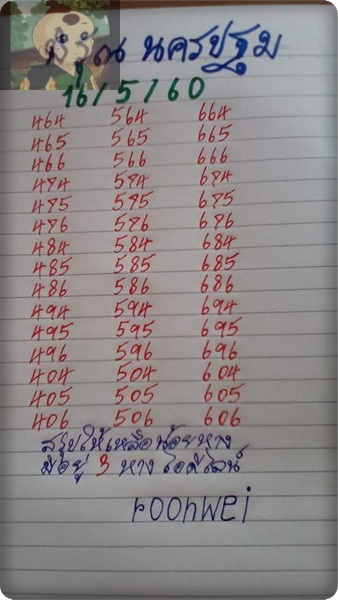 พี่รุณ นครปฐม
16/5/60
464 564 664
465 565 665
466 566 666
474 574 674
475 575 675
476 576 676
484 584 684
485 585 685
486 586 686
494 594 694
495 595 695
496 596 696
404 504 604
405 505 605
406 506 606
สรุปให้เหลือน้อยหาง
มีอยู่ 3 หาง ไอดีไลน์
roonwei